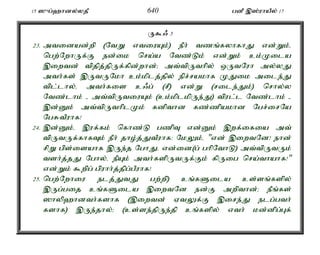 15 ஸுப்ஹானல்லதீ 640 பனீ இஸ்ராயீல் 17
ருகூஃ 3
23. அவனையன்றி (வேறு எவரையும்) நீர் வணங்கலாகாது என்றும், பெற்றோருக்கு நன்மை செய்ய வேண்டும் என்றும் உம்முடைய இறைவன் விதித்திருக்கின்றான்; அவ்விருவரில் ஒருவரோ அல்லது அவர்கள் இருவருமோ உம்மிடத்தில் நிச்சயமாக முதுமை அடைந்து விட்டால், அவர்களை உஃப் (சீ) என்று (சடைந்தும்) சொல்ல வேண்டாம் - அவ்விருவரையும் (உம்மிடமிருந்து) விரட்ட வேண்டாம் - இன்னும் அவ்விருவரிடமும் கனிவான கண்ணியமான பேச்சையே பேசுவீராக!
24. இன்னும், இரக்கம் கொண்டு பணிவு என்னும் இறக்கையை அவ்விருவருக்காகவும் நீர் தாழ்த்துவீராக; மேலும், "என் இறைவனே! நான் சிறு பிள்ளையாக இருந்த போது, என்னை(ப் பரிவோடு) அவ்விருவரும் வளர்த்தது போல், நீயும் அவர்களிருவருக்கும் கிருபை செய்வாயாக!" என்றும் கூறிப் பிரார்த்திப்பீராக!
25. பெற்றோரை நடத்துவது பற்றி) உங்களுடைய உள்ளங்களில் இருப்பதை உங்களுடைய இறைவனே நன்கு அறிவான்; நீங்கள் ஸாலிஹானவர்களாக (இறைவன் ஏவலுக்கு இசைந்து நடப்பவர்களாக) இருந்தால்; (உள்ளந்திருந்தி உங்களில் எவர் மன்னிப்புக்